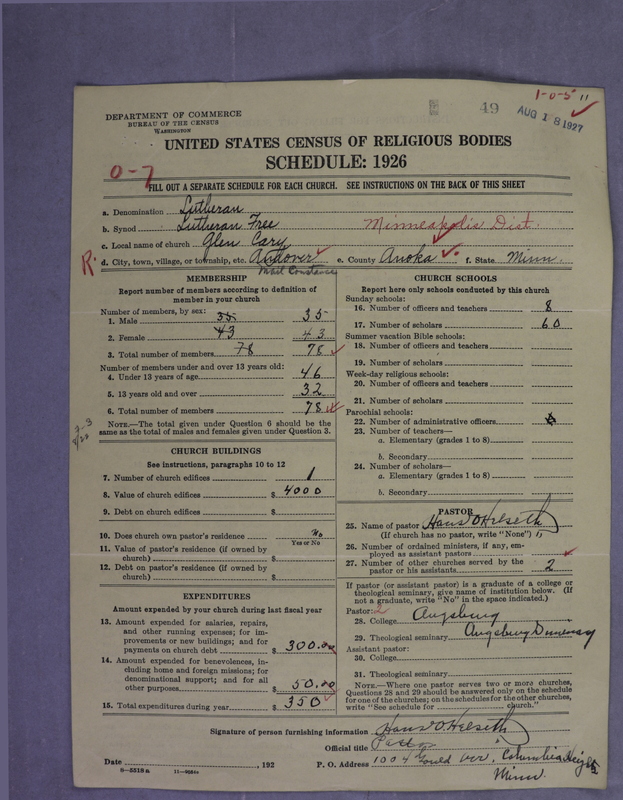 1-0-5 11
49
AUG 18 1927
DEPARTMENT OF COMMERCE
BUREAU OF THE CENSUS
WASHINGTON
UNITED STATES CENSUS OF RELIGIOUS BODIES
SCHEDULE: 1926
0-7
FILL OUT A SEPARATE SCHEDULE FOR EACH CHURCH. SEE INSTRUCTIONS ON THE BACK OF THIS SHEET
a. Denomination Lutheran
b. Synod Lutheran Free Minneapolis Dist.
c. Local name of church Glen Cary
R. d. City, town, village, or township, etc. Andover e. County Anoka f. State Minn.
Mail Constance
MEMBERSHIP
Report number of members according to definition of
member in your church
Number of members, by sex:
1. Male 35 35
2. Female 43 43
3. Total number of members 78 78
Number of members under and over 13 years old:
4. Under 13 years of age 46
5. 13 years old and over 32
6. Total number of members 78
NOTE.—The total given under Question 6 should be the
same as the total of males and females given under Question 3.
CHURCH BUILDINGS
See instructions, paragraphs 10 to 12
7. Number of church edifices 1
8. Value of church edifices $ 4000
9. Debt on church edifices $
10. Does church own pastor's residence? No
Yes or No
11. Value of pastor's residence (if owned by
church) $
12. Debt on pastor's residence (if owned by
church) $
EXPENDITURES
Amount expended by your church during last fiscal year
13. Amount expended for salaries, repairs,
and other running expenses; for im-
provements or new buildings; and for
payments on church debt $ 300.00
14. Amount expended for benevolences, in-
cluding home and foreign missions; for
denominational support; and for all
other purposes $ 50.00
15. Total expenditures during year $ 350
CHURCH SCHOOLS
Report here only schools conducted by this church
Sunday schools:
16. Number of officers and teachers 8
17. Number of scholars 60
Summer vacation Bible schools:
18. Number of officers and teachers
19. Number of scholars
Week-day religious schools:
20. Number of officers and teachers
21. Number of scholars
Parochial schools:
22. Number of administrative officers
23. Number of teachers—
a. Elementary (grades 1 to 8)
b. Secondary
24. Number of scholars—
a. Elementary (grades 1 to 8)
b. Secondary
PASTOR
25. Name of pastor Hans O Helseth
(If church has no pastor, write "None")
26. Number of ordained ministers, if any, em-
ployed as assistant pastors
27. Number of other churches served by the
pastor or his assistants 2
If pastor (or assistant pastor) is a graduate of a college or
theological seminary, give name of institution below. (If
not a graduate, write "No" in the space indicated.)
Pastor: 2
28. College Augsburg
29. Theological seminary Augsburg Seminary
Assistant pastor:
30. College
31. Theological seminary
NOTE.—Where one pastor serves two or more churches,
Questions 28 and 29 should be answered only on the schedule
for one of the churches; on the schedules for the other churches,
write "See schedule for church."
Signature of person furnishing information Hans O Helseth
Official title Pastor
Date , 192 P. O. Address 1004 Gould Ave., Columbia Heights
Minn.
8—5518a 11—9864